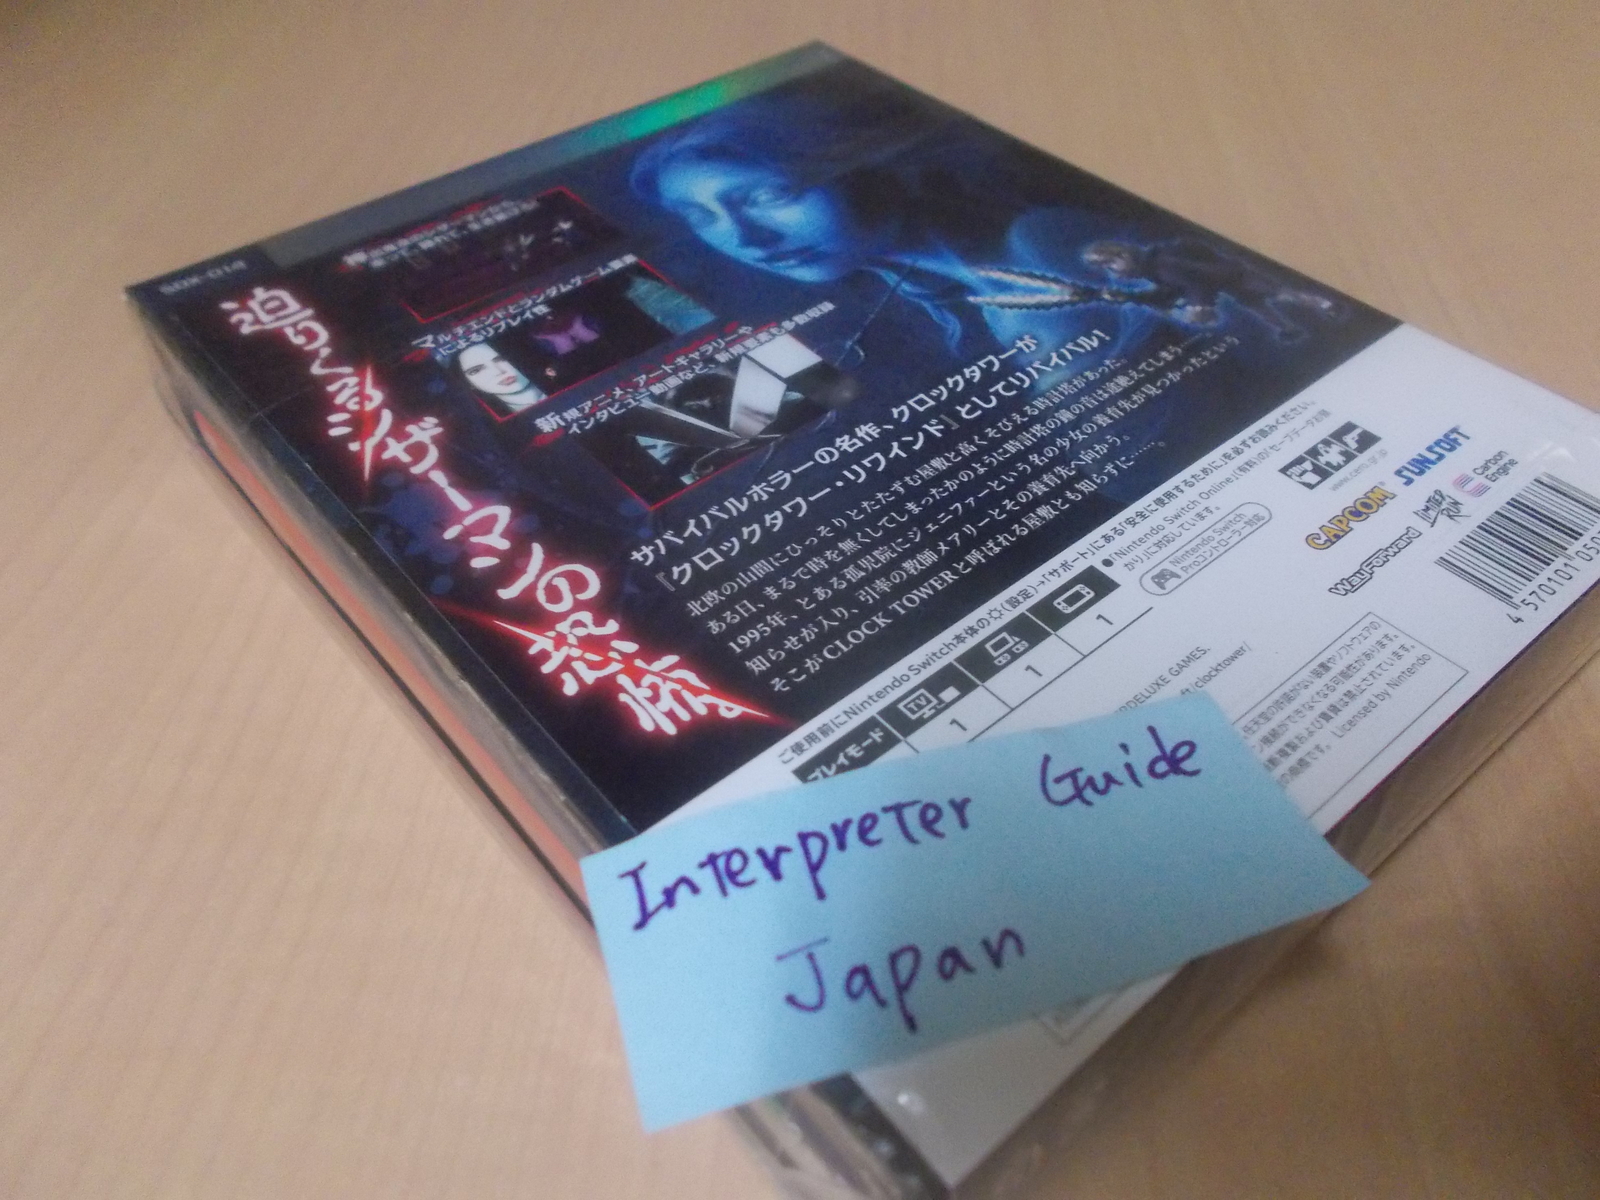 迫りくるシザーマンの恐怖
マルチエンドとランダムゲーム要素
によるリプレイ性
新規アニメ、アートギャラリーや
インタビュー動画など、新規要素も多数収録
サバイバルホラーの名作、クロックタワーが
『クロックタワー・リワインド』としてリバイバル!
北欧の山間にひっそりとたたずむ屋敷と高くそびえる時計塔があった。
ある日、まるで時を無くしてしまったかのように時計塔の鐘の音は途絶えてしまう──
1995年、とある孤児院にジェニファーという名の少女の養育先が見つかったという
知らせが入り、引率の教師メアリーとその養育先へ向かう。
そこがCLOCK TOWERと呼ばれる屋敷とも知らずに……。
ご使用前にNintendo Switch本体の(設定)→「サポート」にある「安全に使用するために」を必ずお読みください。
プレイモード
TV
1
1
1
●「Nintendo Switch Online」(有料)の「セーブデータお預
かり」に対応しています。
Nintendo Switch
Proコントローラー対応
www.cero.gr.jp
CAPCOM
SUNSOFT
WayForward
LIMITED RUN
Carbon
Engine
DELUXE GAMES.
ft/clocktower/
Licensed by Nintendo
4 570101 050
Interpreter Guide
Japan